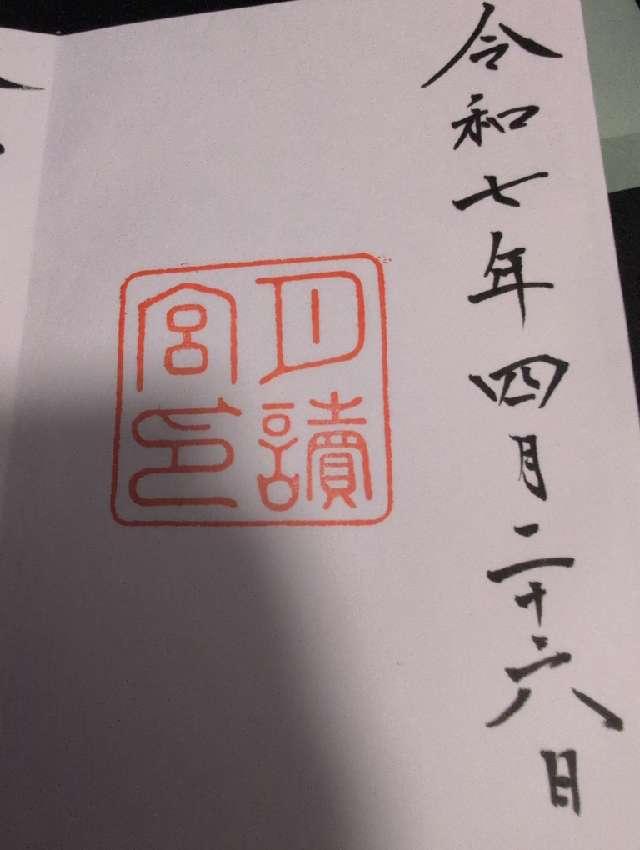 令和七年四月二十六日
月讀
宮印